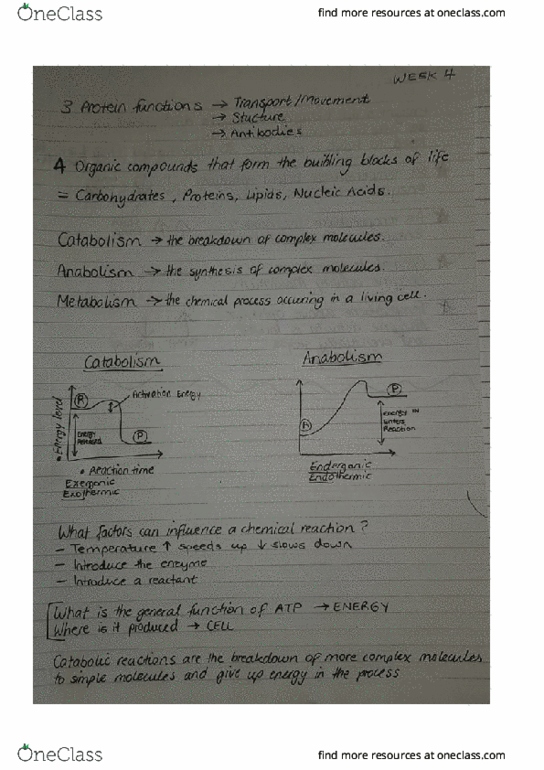 OneClass
find more resources at oneclass.com
WEEK 4
3 Protein functions → Transport/Movement
→ Stucture
→ Antibodies
4 Organic compounds that form the buibling blocks of life
= Carbohydrates, Proteins, Lipids, Nucleic Acids.
Catabolism → the breakdown of complex molecules.
Anabolism → the synthesis of complex molecules.
Metabolism → the chemical process occuring in a living cell.
Catabolism
Anabolism
Energy level
R
Activation Energy
Energy
P
• Reaction time
Exergonic
Exothermic
R
P
energy
Reaction
Enderganic
Endothermic
What factors can influence a chemical reaction?
- Temperature ↑ speeds up ↓ slows down
- Introduce the enzyme
- Introduce a reactant
What is the general function of ATP → ENERGY
Where is it produced → CELL
Catabolic reactions are the breakdown of more complex molecules
to simple molecules and give up energy in the process
OneClass
find more resources at oneclass.com